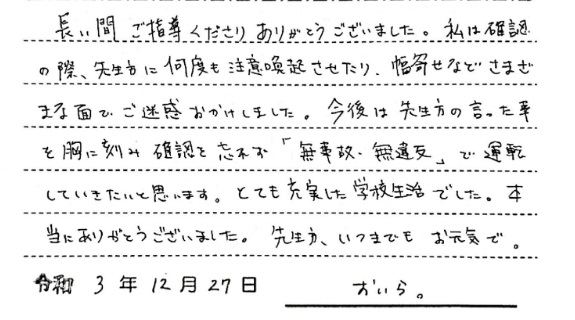 長い間 ご指導くださりありがとうございました。私は確認
の際、先生方に何度も注意喚起させたり、幅寄せなどさまざ
まな面でご迷惑おかけしました。今後は先生方の言った事
を胸に刻み 確認を忘れず「無事故・無違反」で運転
していきたいと思います。とても充実した学校生活でした。本
当にありがとうございました。先生方、いつまでもお元気で。
令和 3 年 12 月 27 日 おいら。